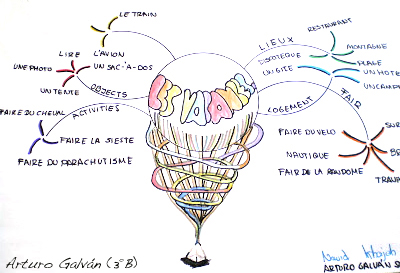 LE TRAIN
L'AVION
LIRE
UNE PHOTO
UN SAC-À-DOS
UN TENTE
OBJECTS
FAIRE DU CHEVAL
ACTIVITIES
FAIRE LA SIESTE
FAIRE DU PARACHUTISME
LIEUX
RESTAURANT
MONTAGNE
DISCOTEQUE
PLAGE
UN GITE
UN HOTE
UN CAMP
LOGEMENT
FAIR
FAIRE DU VELO
SUR
NAUTIQUE
FAIR DE LA RANDONE
TRAVA
Arturo Galván (3ºB)
ARTURO GALVÁN